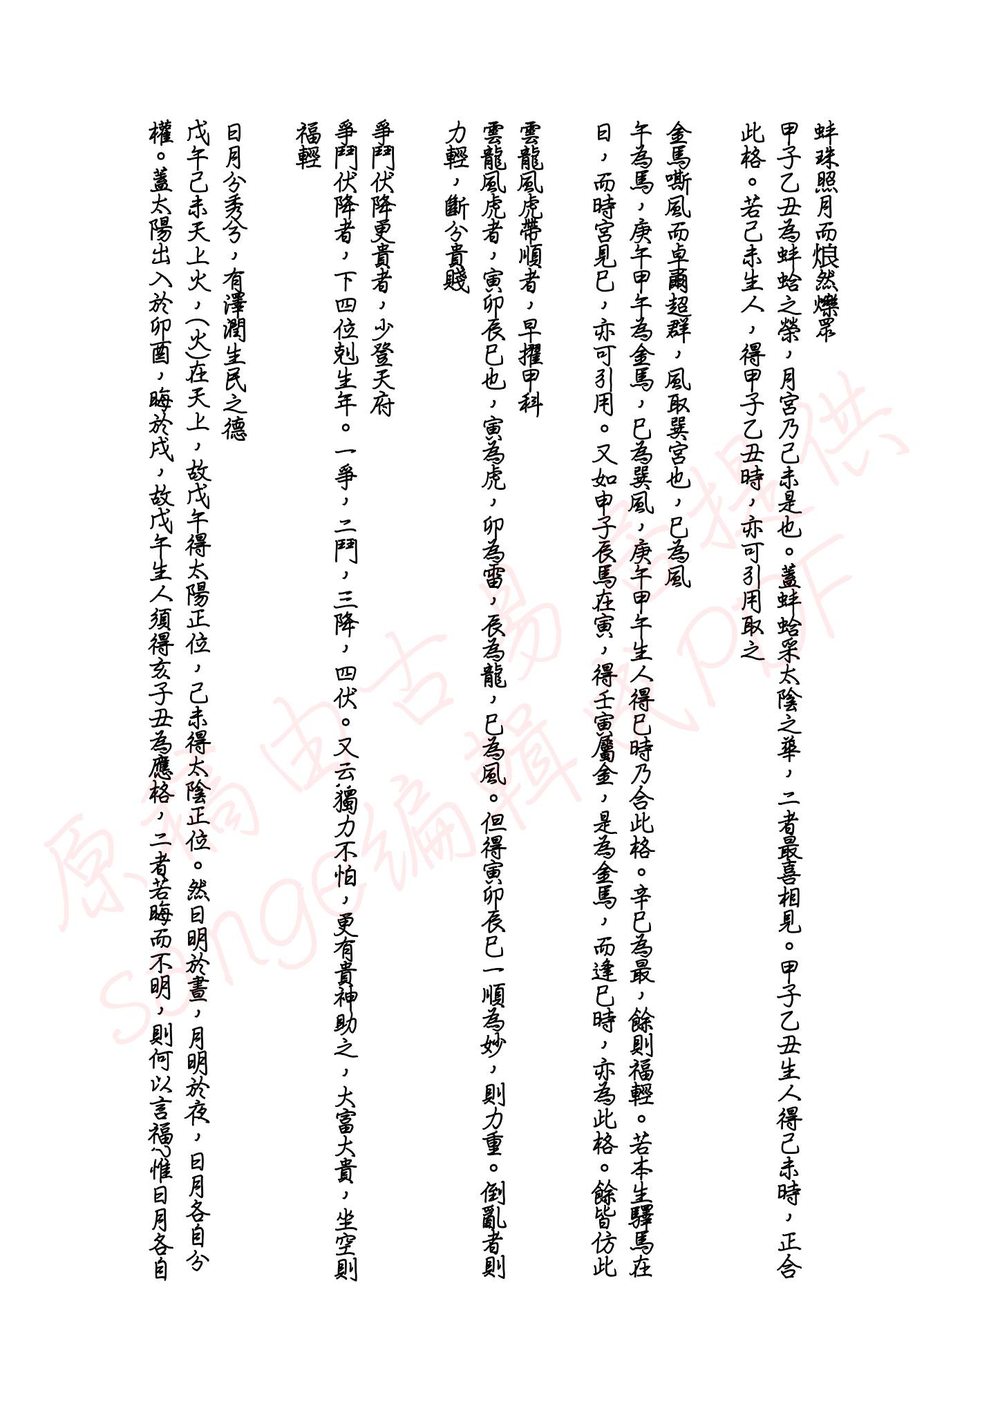 蚌珠照月而烺然爍眾
甲子乙丑為蚌蛤之榮，月宮乃己未是也。蓋蚌蛤采太陰之華，二者最喜相見。甲子乙丑生人得己未時，正合
此格。若己未生人，得甲子乙丑時，亦可引用取之
金馬嘶風而卓爾超群，風取巽宮也，巳為風
午為馬，庚午甲午為金馬，巳為巽風，庚午甲午生人得巳時乃合此格。辛巳為最，餘則福輕。若本生驛馬在
日，而時宮見巳，亦可引用。又如申子辰馬在寅，得壬寅屬金，是為金馬，而逢巳時，亦為此格。餘皆仿此
雲龍風虎帶順者，早擢甲科
雲龍風虎者，寅卯辰巳也，寅為虎，卯為雷，辰為龍，巳為風。但得寅卯辰巳一順為妙，則力重。倒亂者則
力輕，斷分貴賤
爭鬥伏降更貴者，少登天府
爭鬥伏降者，下四位剋生年。一爭，二鬥，三降，四伏。又云獨力不怕，更有貴神助之，大富大貴，坐空則
福輕
日月分秀兮，有澤潤生民之德
戊午己未天上火，(火)在天上，故戊午得太陽正位，己未得太陰正位。然日明於晝，月明於夜，日月各自分
權。蓋太陽出入於卯酉，晦於戌，故戊午生人須得亥子丑為應格，二者若晦而不明，則何以言福?惟日月各自
原稿由古易音提供
sange編輯成PDF